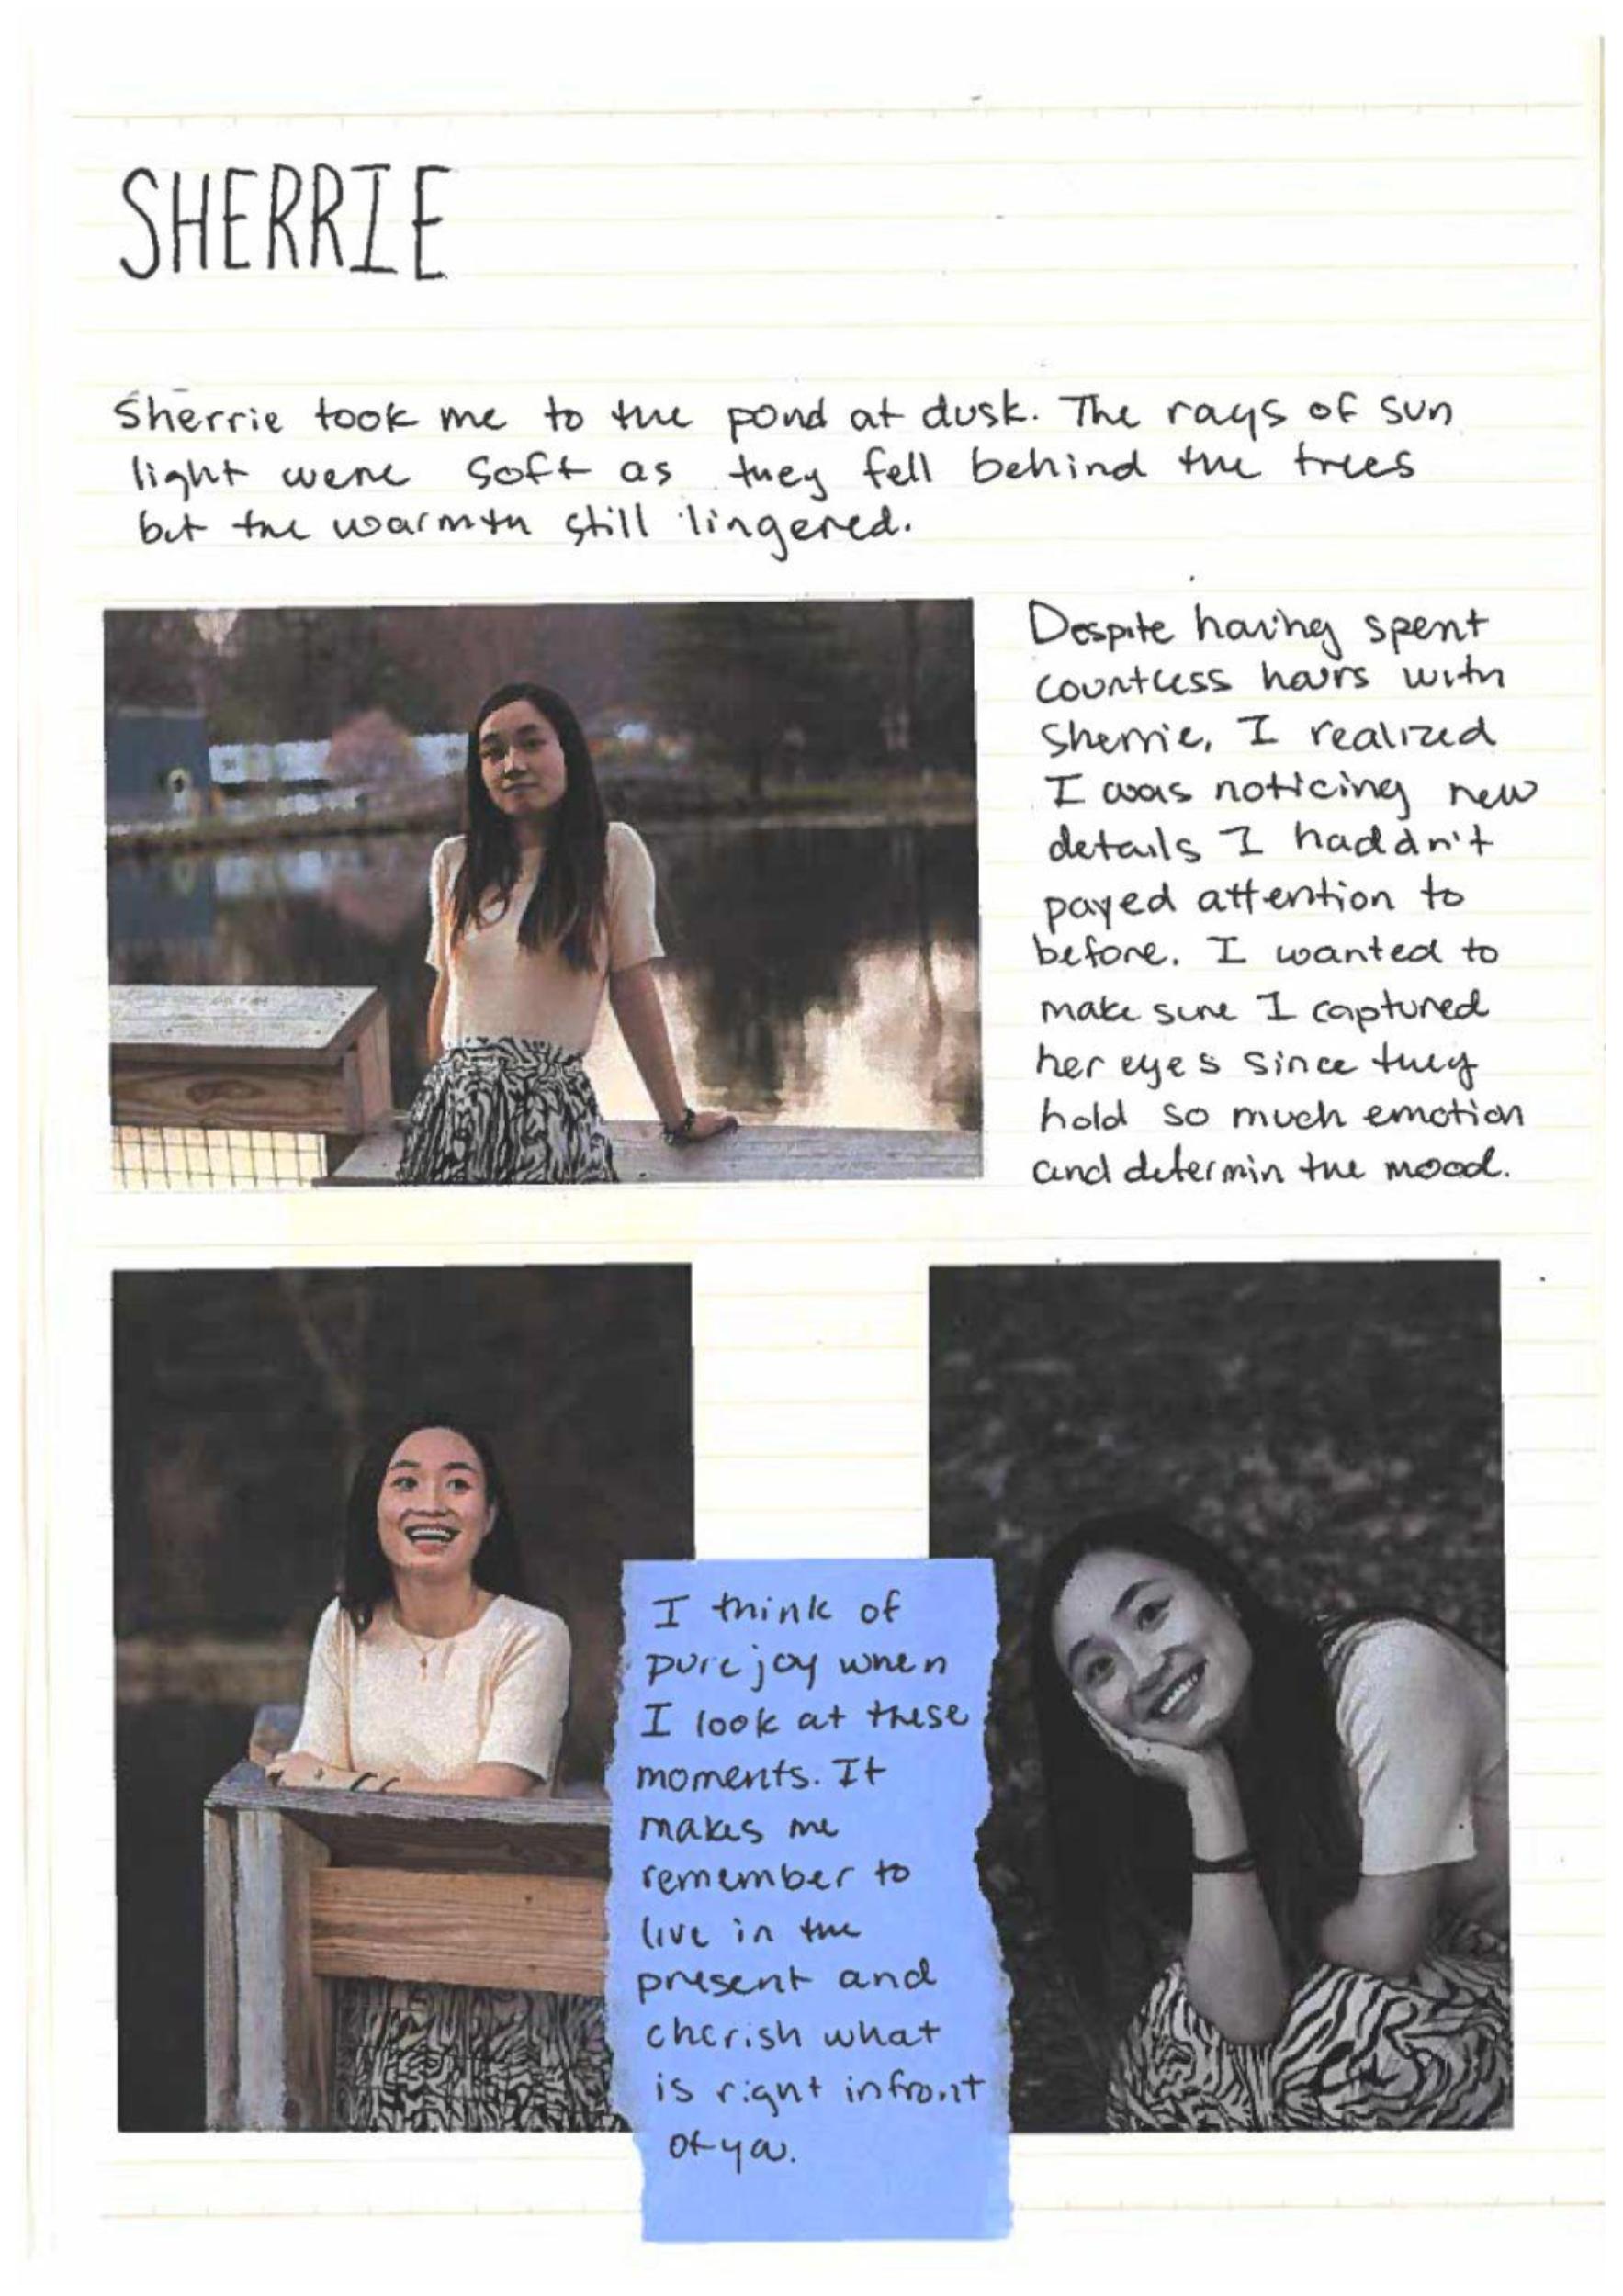 SHERRIE
Sherrie took me to the pond at dusk. The rays of sun
light were soft as they fell behind the trees
but the warmth still lingered.
Despite having spent
countless hours with
Sherrie, I realized
I was noticing new
details I haddn't
payed attention to
before. I wanted to
make sure I captured
her eyes since they
hold so much emotion
and determin the mood.
I think of
pure joy when
I look at these
moments. It
makes me
remember to
live in the
present and
cherish what
is right infront
of you.